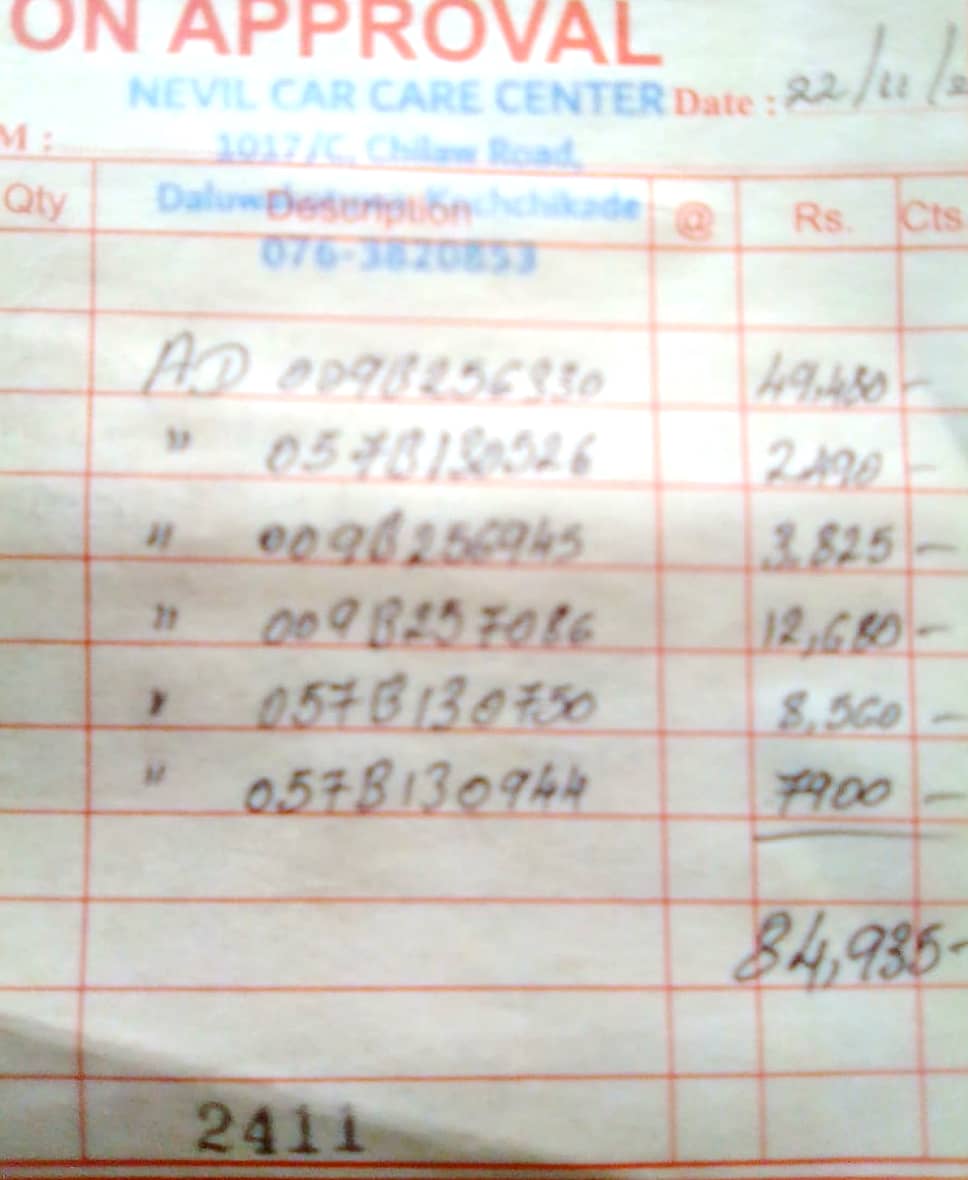 ON APPROVAL
NEVIL CAR CARE CENTER
Date : 22/11/
M :
1017/C, Chilaw Road,
Kochchikade
076-3820853
Qty Description @ Rs. Cts
AD 009B256330 49,480 -
" 057B130526 2490 -
" 009B256945 3,825 -
" 009B257086 12,680 -
" 057B130750 8,560 -
" 057B130944 7900 -
84,935-
2411